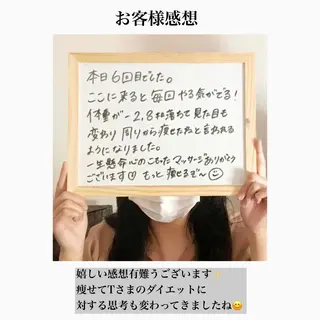 お客様感想
本日6回目でした。
ここに来ると毎回やる気がでる!
体重が-2.8kg落ちて見た目も
変わり周りから痩せたねと言われる
ようになりました。
一生懸命心のこもったマッサージありがとう
ございます もっと痩せるぞ〜☺
嬉しい感想有難うございます✨
痩せてTさまのダイエットに
対する思考も変わってきましたね😊